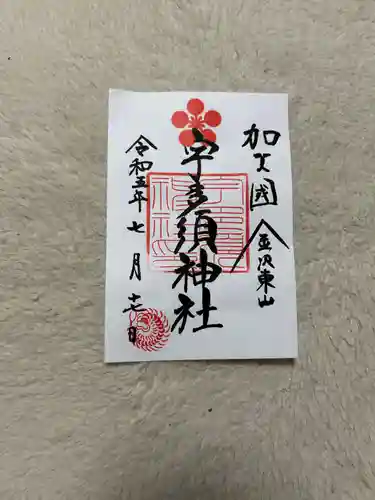 加賀國
金沢東山
宇多須神社
令和五年七月十七日